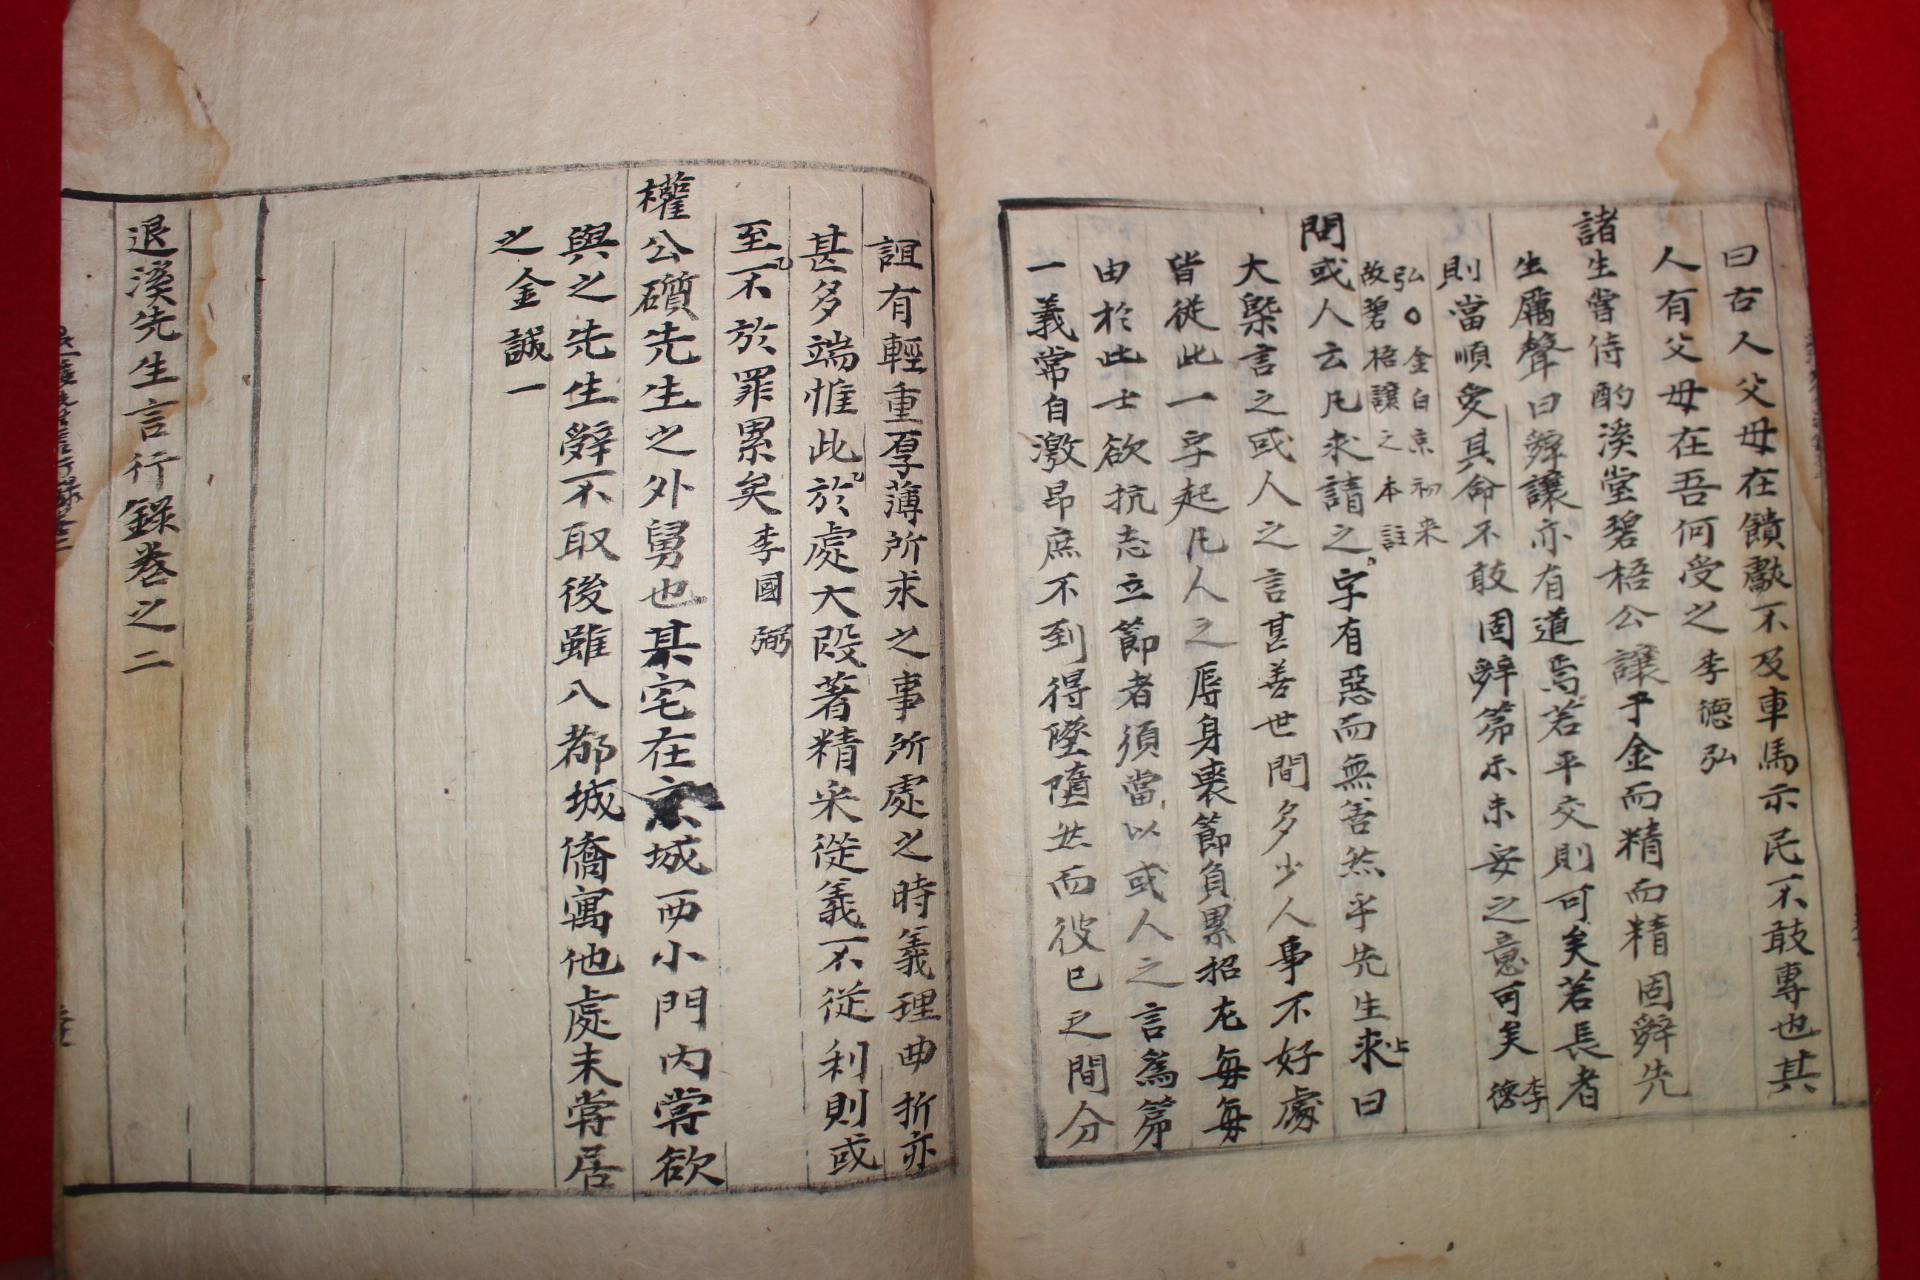 曰古人父母在饋獻不及車馬示民不敢專也其
人有父母在吾何受之李德弘
諸生嘗侍酌溪堂碧梧公讓于金而精而精固辭先
生厲聲曰辭讓亦有道焉若平交則可矣若長者
則當順受其命不敢固辭第示未安之意可矣李德
弘○金白京初來
故碧梧讓之本註
問或人云凡求請之字有惡而無善然乎先生求曰
大槩言之或人之言甚善世間多少人事不好處
皆從此一字起凡人之辱身喪節負累招尤每每
由於此士欲抗志立節者須當以或人之言爲第
一義常自激昂庶不到得墜墮然而彼已之間分
誼有輕重厚薄所求之事所處之時義理曲折亦
甚多端惟此於處大段著精采從義不從利則或
至不於罪累矣李國弼
權公礩先生之外舅也某宅在京城西小門內嘗欲
與之先生辭不取後雖入都城僑寓他處未嘗居
之金誠一
退溪先生言行錄卷之二